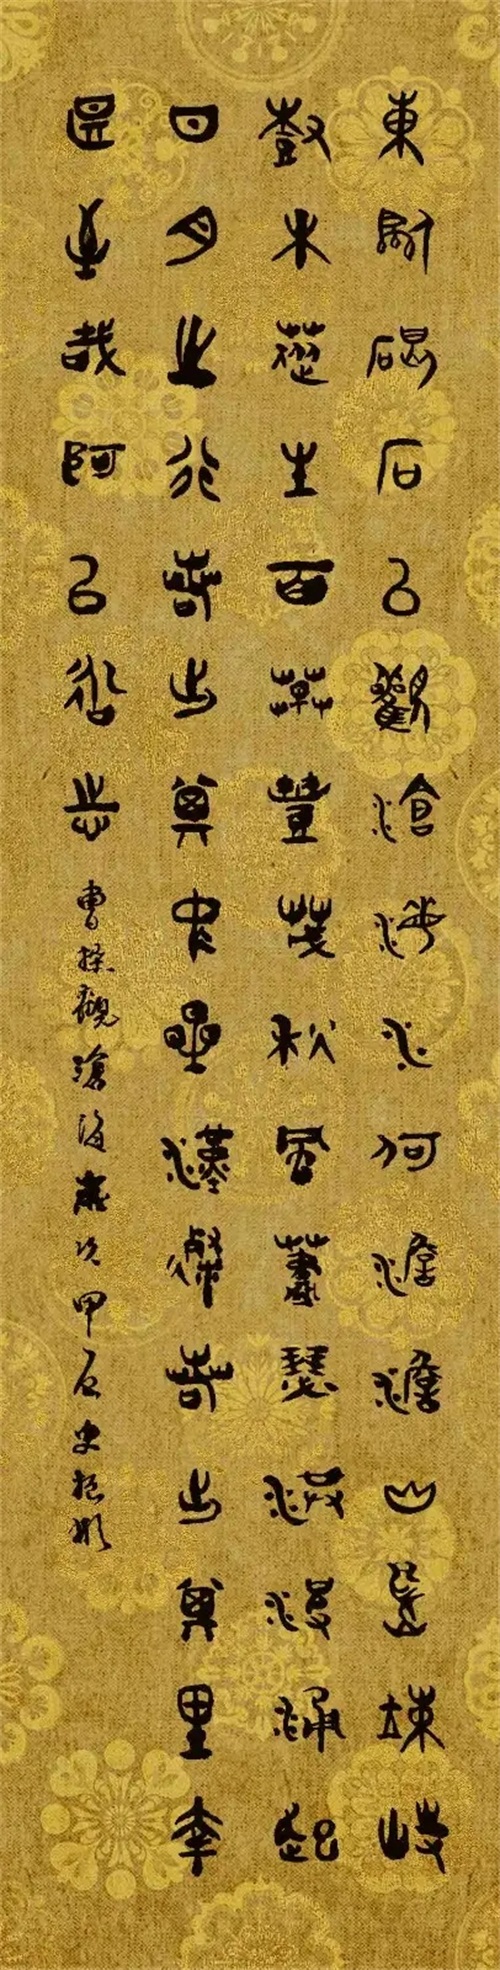 東臨碣石以觀滄海水何澹澹山島竦峙
樹木叢生百草豐茂秋風蕭瑟洪波涌起
日月之行若出其中星漢燦若出其里幸
甚至哉歌以詠志
曹操觀滄海歲次甲辰史